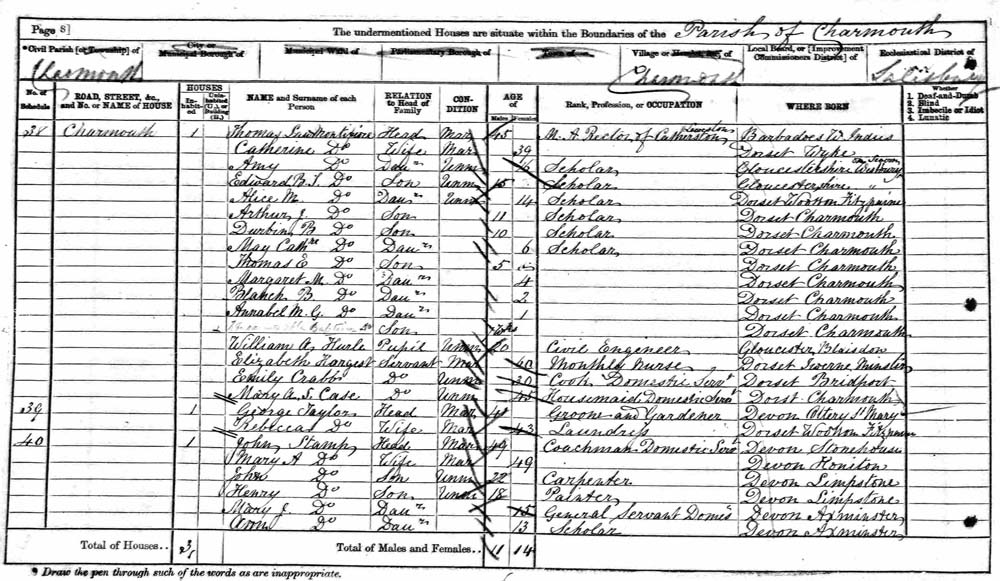 Page 8]
The undermentioned Houses are situate within the Boundaries of the Parish of Charmouth
Civil Parish [or Township] of City or Municipal Borough of Municipal Ward of Parliamentary Borough of Town of Village or Hamlet, &c., of Local Board, or [Improvement Commissioners District] of Ecclesiastical District of
Charmouth Charmouth Salisbury
No. of Schedule ROAD, STREET, &c., and No. or NAME of HOUSE HOUSES Inhabited Uninhabited (U.), or Building (B.) NAME and Surname of each Person RELATION to Head of Family CONDITION AGE of Males Females Rank, Profession, or OCCUPATION WHERE BORN Whether 1. Deaf-and-Dumb 2. Blind 3. Imbecile or Idiot 4. Lunatic
38 Charmouth 1 Thomas Head Mar 45 M.A. Rector of Catherston Leweston Barbadoes W Indies
Catherine Do Wife Mar 39 Dorset Wyke
Amy Do Daur Unm 16 Scholar Gloucestershire Westbury on Severn
Edward B. S. Do Son Unm 15 Scholar Gloucestershire "
Alice M. Do Daur Unm 14 Scholar Dorset Wootton Fitzpaine
Arthur J. Do Son 11 Scholar Dorset Charmouth
Durbin B Do Son 10 Scholar Dorset Charmouth
May Cathne Do Daur 6 Scholar Dorset Charmouth
Thomas E Do Son 5 Dorset Charmouth
Margaret M. Do Daur 4 Dorset Charmouth
Blanch B. Do Daur 2 Dorset Charmouth
Annabel M. G. Do Daur 1 Dorset Charmouth
Do Son Wks Dorset Charmouth
William A. Hurle Pupil Unm 20 Civil Engeneer Gloucester Blaisdon
Elizabeth Hargest Servant Mar 40 Monthly Nurse Dorset Iwerne Minster
Emily Crabb Do Unm 30 Cook Domestic Servt Dorset Bridport
Mary A. S. Case Do Unm 45 Housemaid Domestic Servt Dorset Charmouth
39 1 George Taylor Head Mar 41 Groom and Gardener Devon Ottery St Mary
Rebecca Do Wife Mar 43 Laundress Dorset Wootton Fitzpaine
40 1 John Stamp Head Mar 49 Coachman Domestic Servt Devon Stonehouse
Mary A Do Wife Mar 49 Devon Honiton
John Do Son Unm 22 Carpenter Devon Limpstone
Henry Do Son Unm 18 Painter Devon Limpstone
Mary J. Do Daur 15 General Servant Domes Devon Axminster
Ann Do Daur 13 Scholar Devon Axminster
Total of Houses.. 3 Total of Males and Females.. 11 14
* Draw the pen through such of the words as are inappropriate.